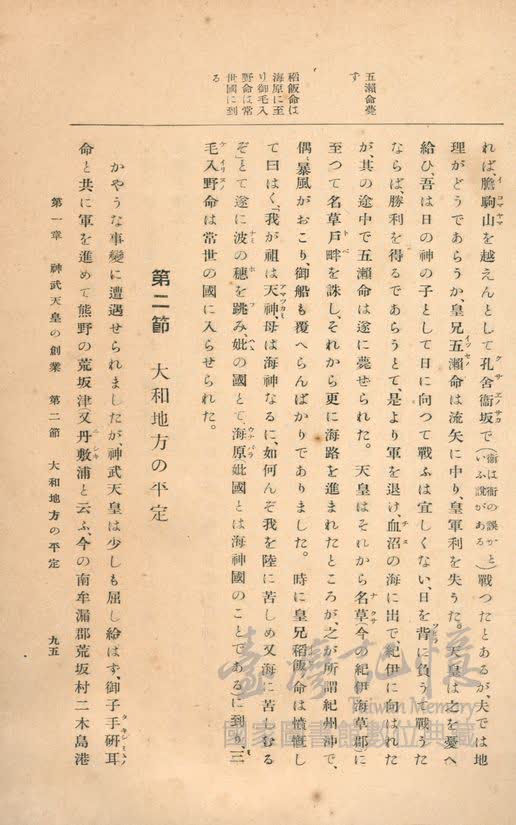 五瀨命薨
ず
稻飯命は
海原に至
り御毛入
野命は常
世國に到
る
れば、膽駒山を越えんとして孔舍衞坂で(衞は衙の誤かといふ說がある)戰つたとあるが、夫では地
理がどうであらうか、皇兄五瀨命は流矢に中り、皇軍利を失うた。天皇は之を憂へ
給ひ、吾は日の神の子として日に向つて戰ふは宜しくない、日を背に負うて戰うた
ならば、勝利を得るであらうとて、是より軍を退け、血沼の海に出で、紀伊に向はれた
が、其の途中で五瀨命は遂に薨ぜられた。天皇はそれから名草(今の紀伊海草郡)に
至つて名草戸畔を誅し、それから更に海路を進まれたところが、之が所謂紀州沖で、
偶〻暴風がおこり、御船も覆へらんばかりでありました。時に皇兄稻飯命は憤慨し
て曰はく、「我が祖は天神、母は海神なるに、如何んぞ我を陸に苦しめ又海に苦しむる
ぞ」とて遂に波の穗を跳み、妣の國とて海原(妣國とは海神國のことである)に到り、三
毛入野命は常世の國に入らせられた。
第二節 大和地方の平定
かやうな事變に遭遇せられましたが、神武天皇は少しも屈し給はず、御子手硏耳
命と共に軍を進めて熊野の荒坂津(又丹敷浦と云ふ、今の南牟漏郡荒坂村二木島港
第一章 神武天皇の創業 第二節 大和地方の平定 九五
臺灣記憶
Taiwan Memory
國家圖書館數位典藏